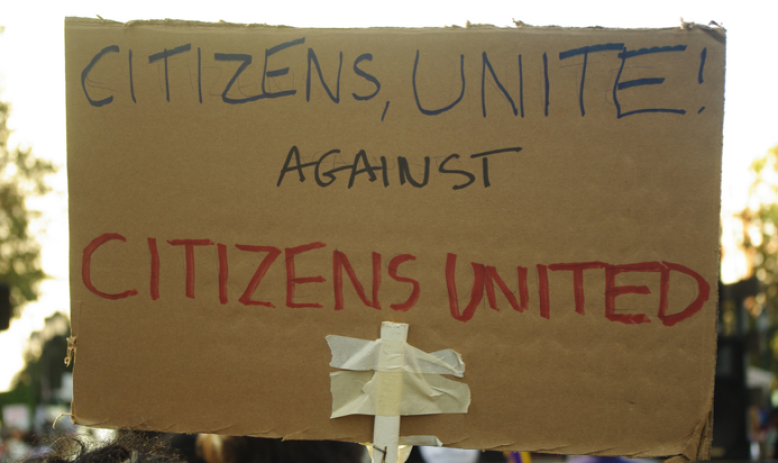 CITIZENS, UNITE!
AGAINST
CITIZENS UNITED